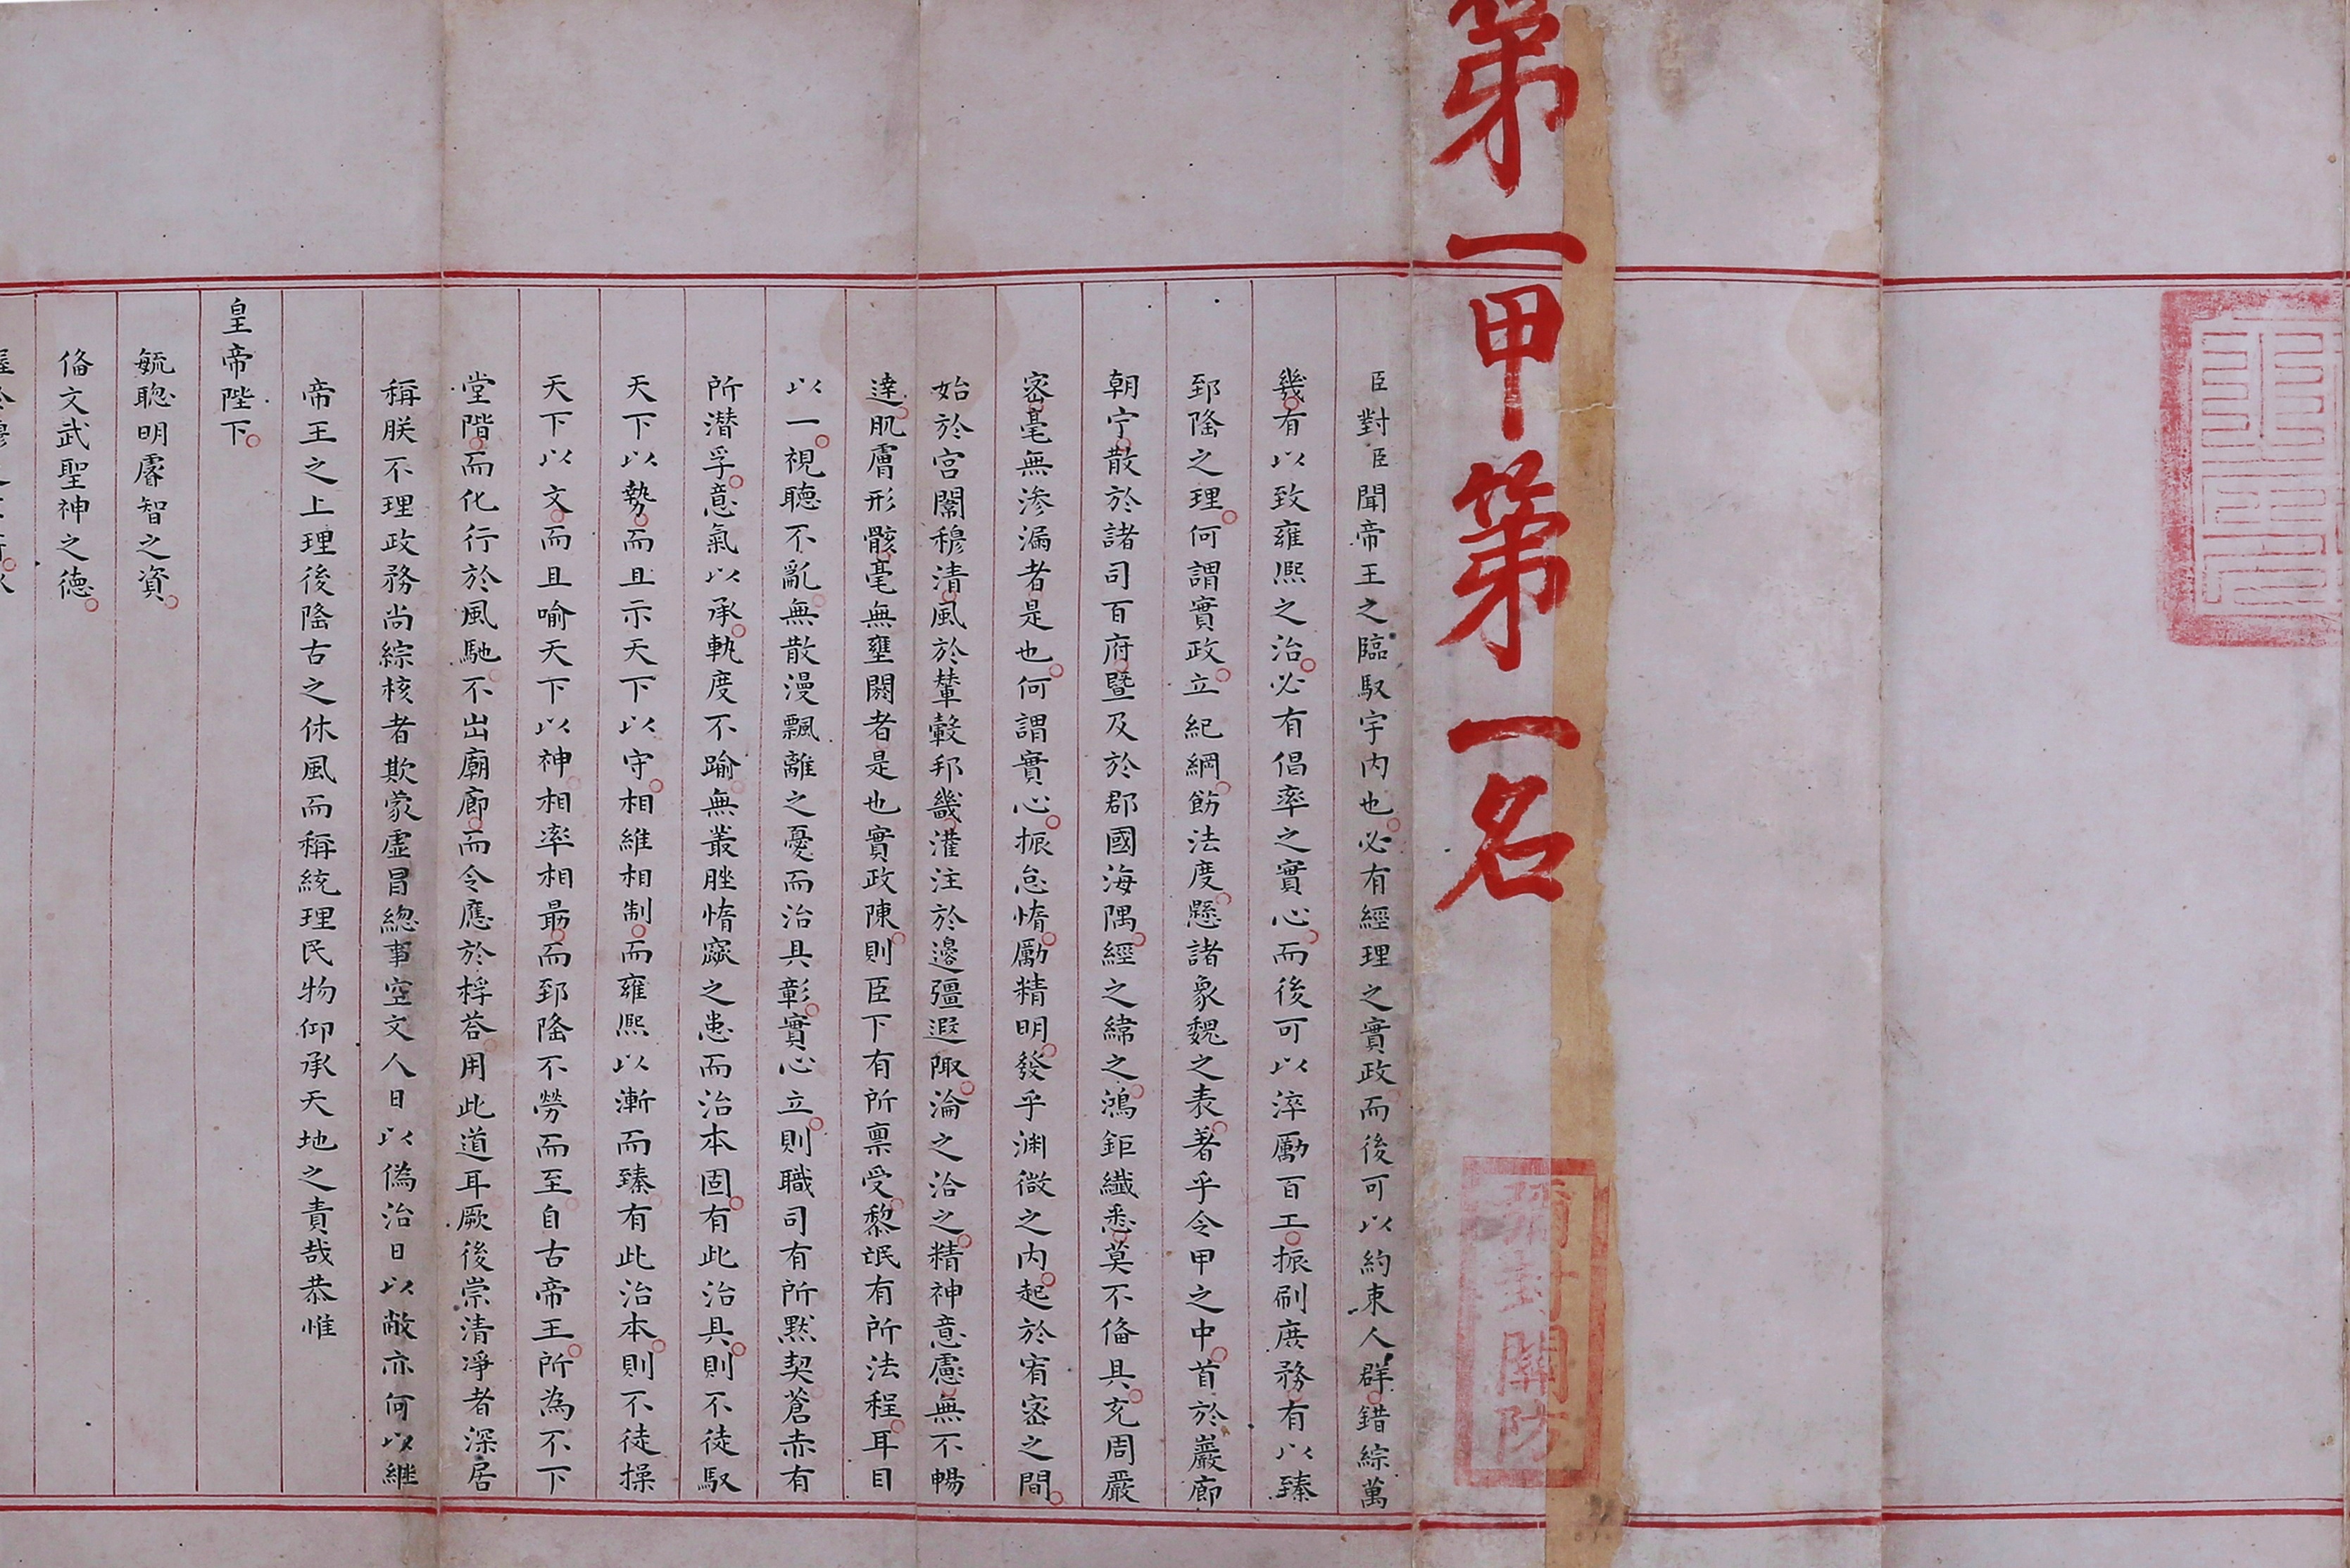 第一甲第一名
彌封關防
臣對臣聞帝王之臨馭宇内也必有經理之實政而後可以約束人群錯綜萬
幾有以致雍熙之治必有倡率之實心而後可以淬勵百工振刷庶務有以臻
郅隆之理何謂實政立紀綱飭法度懸諸象魏之表著乎令甲之中首於巖廊
朝宁散於諸司百府暨及於郡國海隅經之緯之鴻鉅纖悉莫不俻具充周嚴
宻毫無滲漏者是也何謂實心振怠惰勵精明發乎渊微之内起於宥宻之間
始於宫闈穆清風於輦轂邦畿灌注於邊疆遐陬淪之洽之精神意慮無不暢
達肌膚形骸毫無壅閼者是也實政陳則臣下有所禀受黎氓有所法程耳目
以一視聽不亂無散漫飄離之憂而治具彰實心立則職司有所默契蒼赤有
所潜孚意氣以承軌度不踰無叢脞惰窳之患而治本固有此治具則不徒馭
天下以勢而且示天下以守相維相制而雍熙以漸而臻有此治本則不徒操
天下以文而且喻天下以神相率相最而郅隆不勞而至自古帝王所為不下
堂階而化行於風馳不出廟廊而令應於桴荅用此道耳厥後崇清凈者深居
稱朕不理政務尚綜核者欺蒙虚冒總事空文人日以偽治日以敝亦何以継
帝王之上理後隆古之休風而稱統理民物仰承天地之責哉恭惟
皇帝陛下
毓聰明睿智之資
俻文武聖神之德